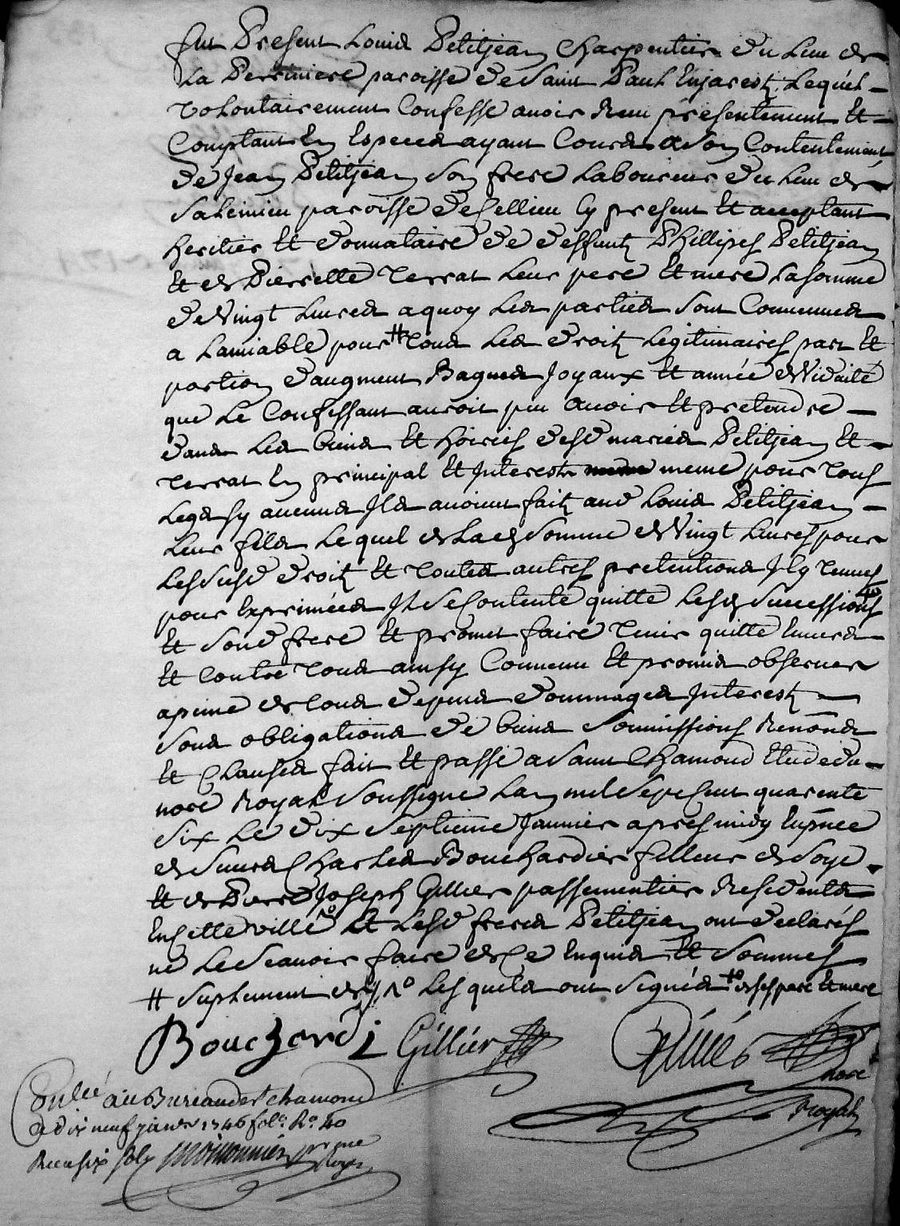 Fut Present Louis Petitjean Charpentier du lieu de
la Perriniere paroisse de Saint Paul Enjarest, Lequel
volontairement Confesse avoir Receu présentement Et
Comptant En Especes ayant Cours a Son Contentement
de Jean Petitjean Son frere Laboureur du lieu de
Salemieu paroisse de Cellieu Cy present Et acceptant
heritier Et donnataire de deffuntz Phillipes Petitjean
Et de Pierrette Terrat Leur pere Et mere La Somme
de Vingt Livres a quoy Les parties Sont Convenues
a Lamiable pour # Tous Les droitz Legitimaires part Et
portion daugment Bagues Joyaux Et année de Viduité
que Le Confessant auroit pu avoir Et pretendre
dans Les biens Et hoiries desd mariés Petitjean Et
Terrat En principal Et Interests meme pour Tous
Legs sy aucuns Ils avoient faitz aud Louis Petitjean
Leur fils Lequel de Lad Somme de Vingt Livres pour
Les Susd droitz Et Toutes autres pretentions Icy Tenues
pour Exprimées Il Se Contente quitte Lesd Successions +o
Et Sond frere Et promet faire Tenir quitte Envers
Et Contre Tous ainsy Convenu Et promis observer
a peine de Tous depens dommages Interestz
Sous obligations de biens Soumissions Renons
Et Clauses fait Et passé a Saint Chamond Etude du
nore Royal Soussigné Lan mil Sept Cent quarente
Six Le dix Septieme Janvier apres midy En pnce
de Sieurs Charles Bouchardier filleur de Soye
Et de Pierre Joseph Gillier passementier Residents
En Cette ville Et Lesd freres Petitjean ont declarés
ne Le Scavoir faire de Ce Enquis Et Sommés
# Suplement de Lesquels ont Signés +o de Ses pere Et mere
Bouchardi Gillier
nore
Royal
Controllé au Bureau de St chamond
Le dix neuf janvier 1746 fol. Ro. 40
Receu six sols